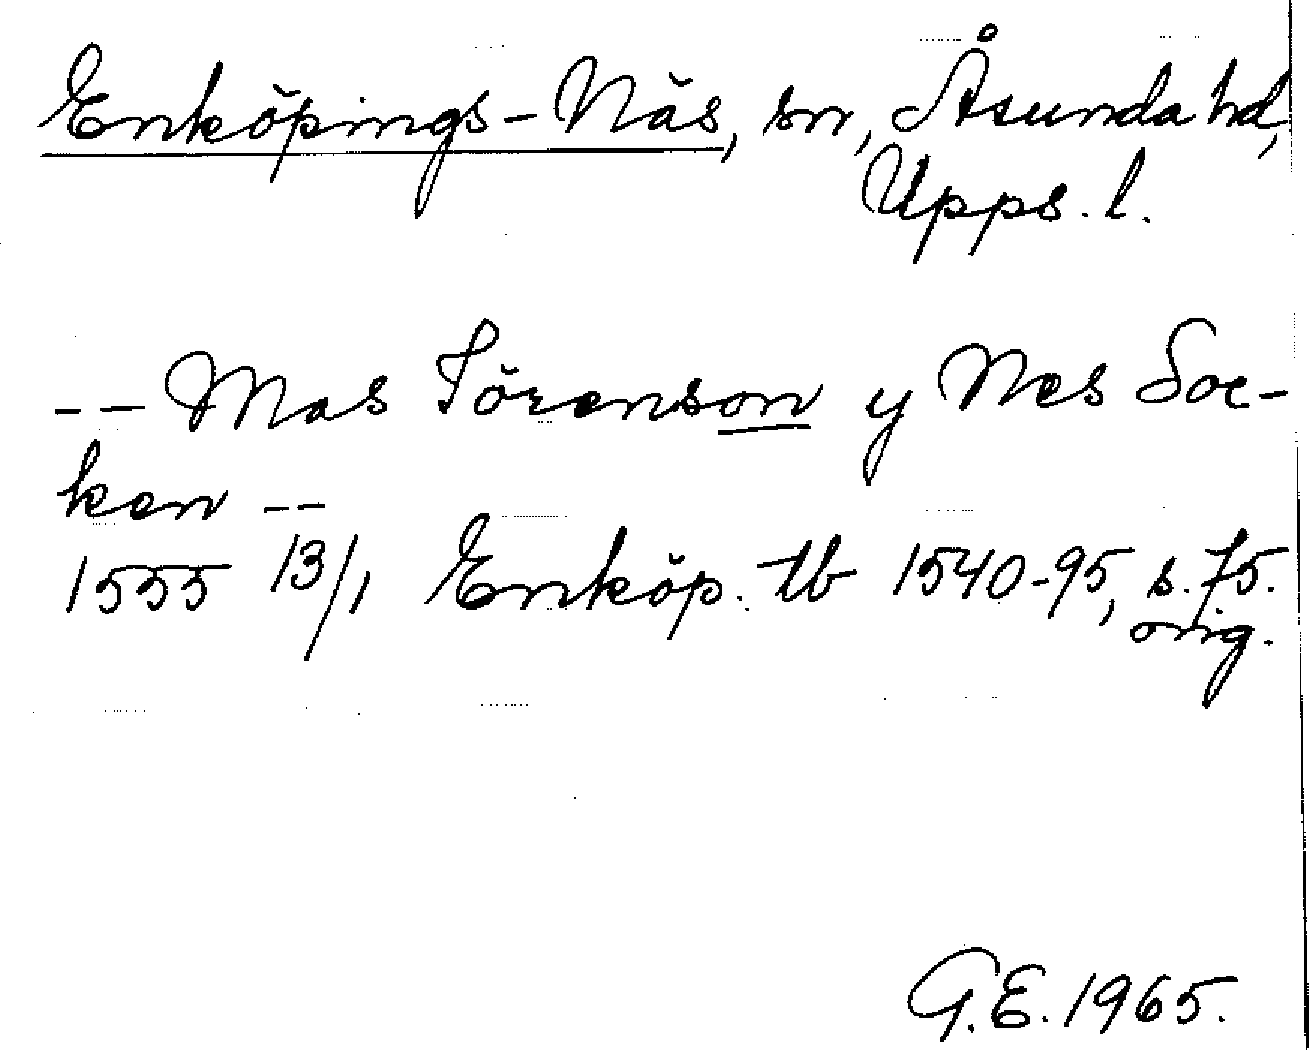 Enköpings-Näs, sn, Åsunda hd,
Upps. l.
-- Mas Sörenson y Nes Soc-
ken --
1555 13/1 Enköp. tb 1540-95, s. 75.
orig.
G.E. 1965.